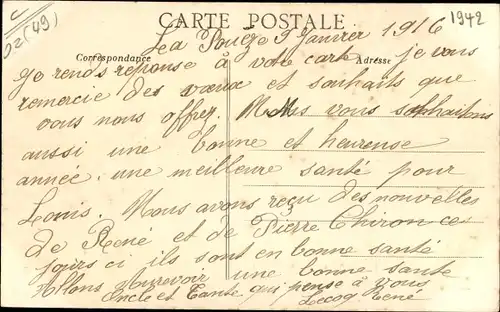 CARTE POSTALE
1942
02(49)
La Pouëze 9 Janvier 1916
Correspondance
Adresse
Je rends réponse à votre carte je vous
remercie des vœux et souhaits que
vous nous offrez. Nous vous souhaitons
aussi une bonne et heureuse
année une meilleure santé pour
Louis. Nous avons reçu des nouvelles
de René et de Pierre Chiron ce
jours ci ils sont en bonne santé
Allons Aurevoir une bonne santé
Oncle et Tante qui pense à vous
Lecoq René